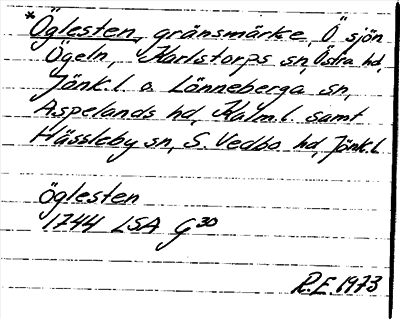 *Öglesten, gränsmärke, Ö sjön
Ögeln, Karlstorps sn, Östra hd,
Jönk.l. o. Lönneberga sn,
Aspelands hd, Kalm.l. samt
Hässleby sn, S. Vedbo hd, Jönk.l.
öglesten
1744 LSA G³⁰
R.E. 1973